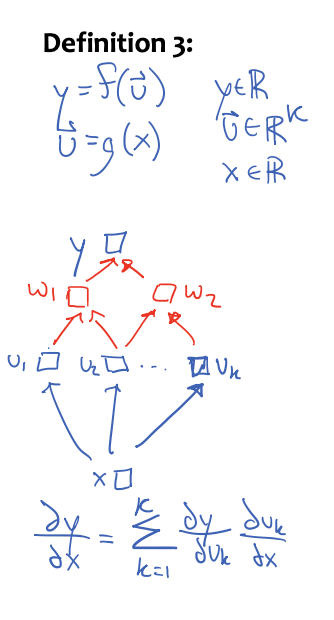 Definition 3:
y = f(u⃗) y∈ℝ
u⃗ = g(x) u⃗∈ℝᴷ
x∈ℝ
y
w₁ w₂
u₁ u₂ ... uₖ
x
∂y/∂x = Σ_{k=1}^{K} ∂y/∂uₖ ∂uₖ/∂x